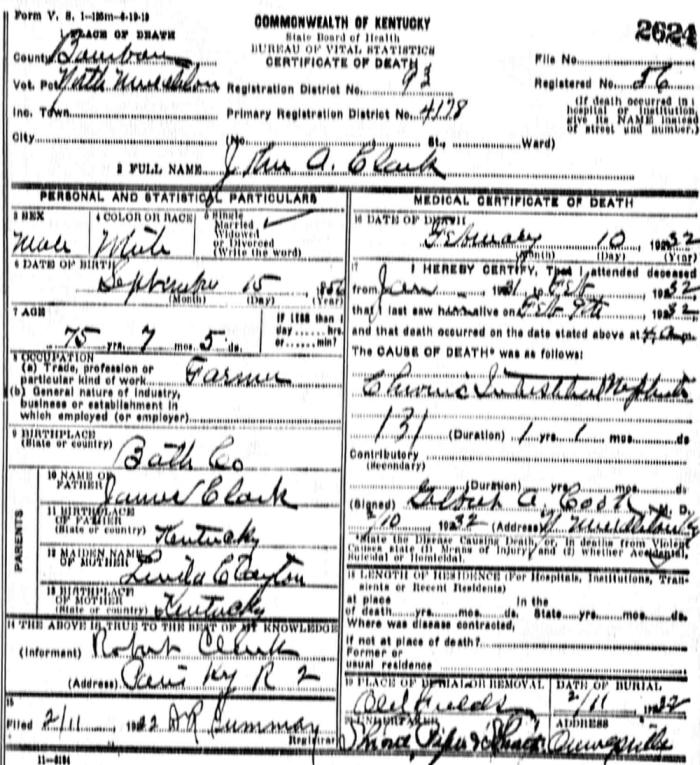 Form V. S. 1-125m-6-19-19
COMMONWEALTH OF KENTUCKY
State Board of Health
BUREAU OF VITAL STATISTICS
CERTIFICATE OF DEATH
2624
1 PLACE OF DEATH
County Bourbon
Vot. Pct. North Middletown
Inc. Town
City
Registration District No. 93
Primary Registration District No. 4178
File No.
Registered No. 56
(If death occurred in a
hospital or institution,
give its NAME instead
of street and number.)
(No. St., Ward)
2 FULL NAME John A. Clark
PERSONAL AND STATISTICAL PARTICULARS
3 SEX
Male
4 COLOR OR RACE
White
5 Single
Married
Widowed
or Divorced
(Write the word)
6 DATE OF BIRTH
September 15 1856
(Month) (Day) (Year)
7 AGE
75 yrs. 7 mos. 5 ds.
IF LESS than 1
day hrs.
or min?
8 OCCUPATION
(a) Trade, profession or
particular kind of work Farmer
(b) General nature of industry,
business or establishment in
which employed (or employer)
9 BIRTHPLACE
(State or country)
Bath Co
PARENTS
10 NAME OF
FATHER
James Clark
11 BIRTHPLACE
OF FATHER
(State or country) Kentucky
12 MAIDEN NAME
OF MOTHER
Clayton
13 BIRTHPLACE
OF MOTHER
(State or country) Kentucky
14 THE ABOVE IS TRUE TO THE BEST OF MY KNOWLEDGE
(Informant) Robert Clark
(Address) Paris Ky R 2
15
Filed 2/11 1932
Registrar
11-3184
MEDICAL CERTIFICATE OF DEATH
16 DATE OF DEATH
February 10 1932
(Month) (Day) (Year)
17 I HEREBY CERTIFY, That I attended deceased
from Jan 1931 to Feb 1932
that I last saw him alive on Feb 9th 1932
and that death occurred on the date stated above at
The CAUSE OF DEATH* was as follows:
Chronic Interstitial Nephritis
131 (Duration) 1 yrs. 1 mos. ds
Contributory
(Secondary)
(Duration) yrs. mos. ds.
(Signed) Gilbert A. Cook M. D.
2/10 1932 (Address) N Middletown Ky
*State the Disease Causing Death, or, in deaths from Violent
Causes state (1) Means of Injury; and (2) whether Accidental,
Suicidal or Homicidal.
18 LENGTH OF RESIDENCE (For Hospitals, Institutions, Tran-
sients or Recent Residents)
at place In the
of death yrs. mos. ds. State yrs. mos. ds.
Where was disease contracted,
If not at place of death?
Former or
usual residence
19 PLACE OF BURIAL OR REMOVAL
DATE OF BURIAL
2/11 1932
20 UNDERTAKER
ADDRESS
Owingsville